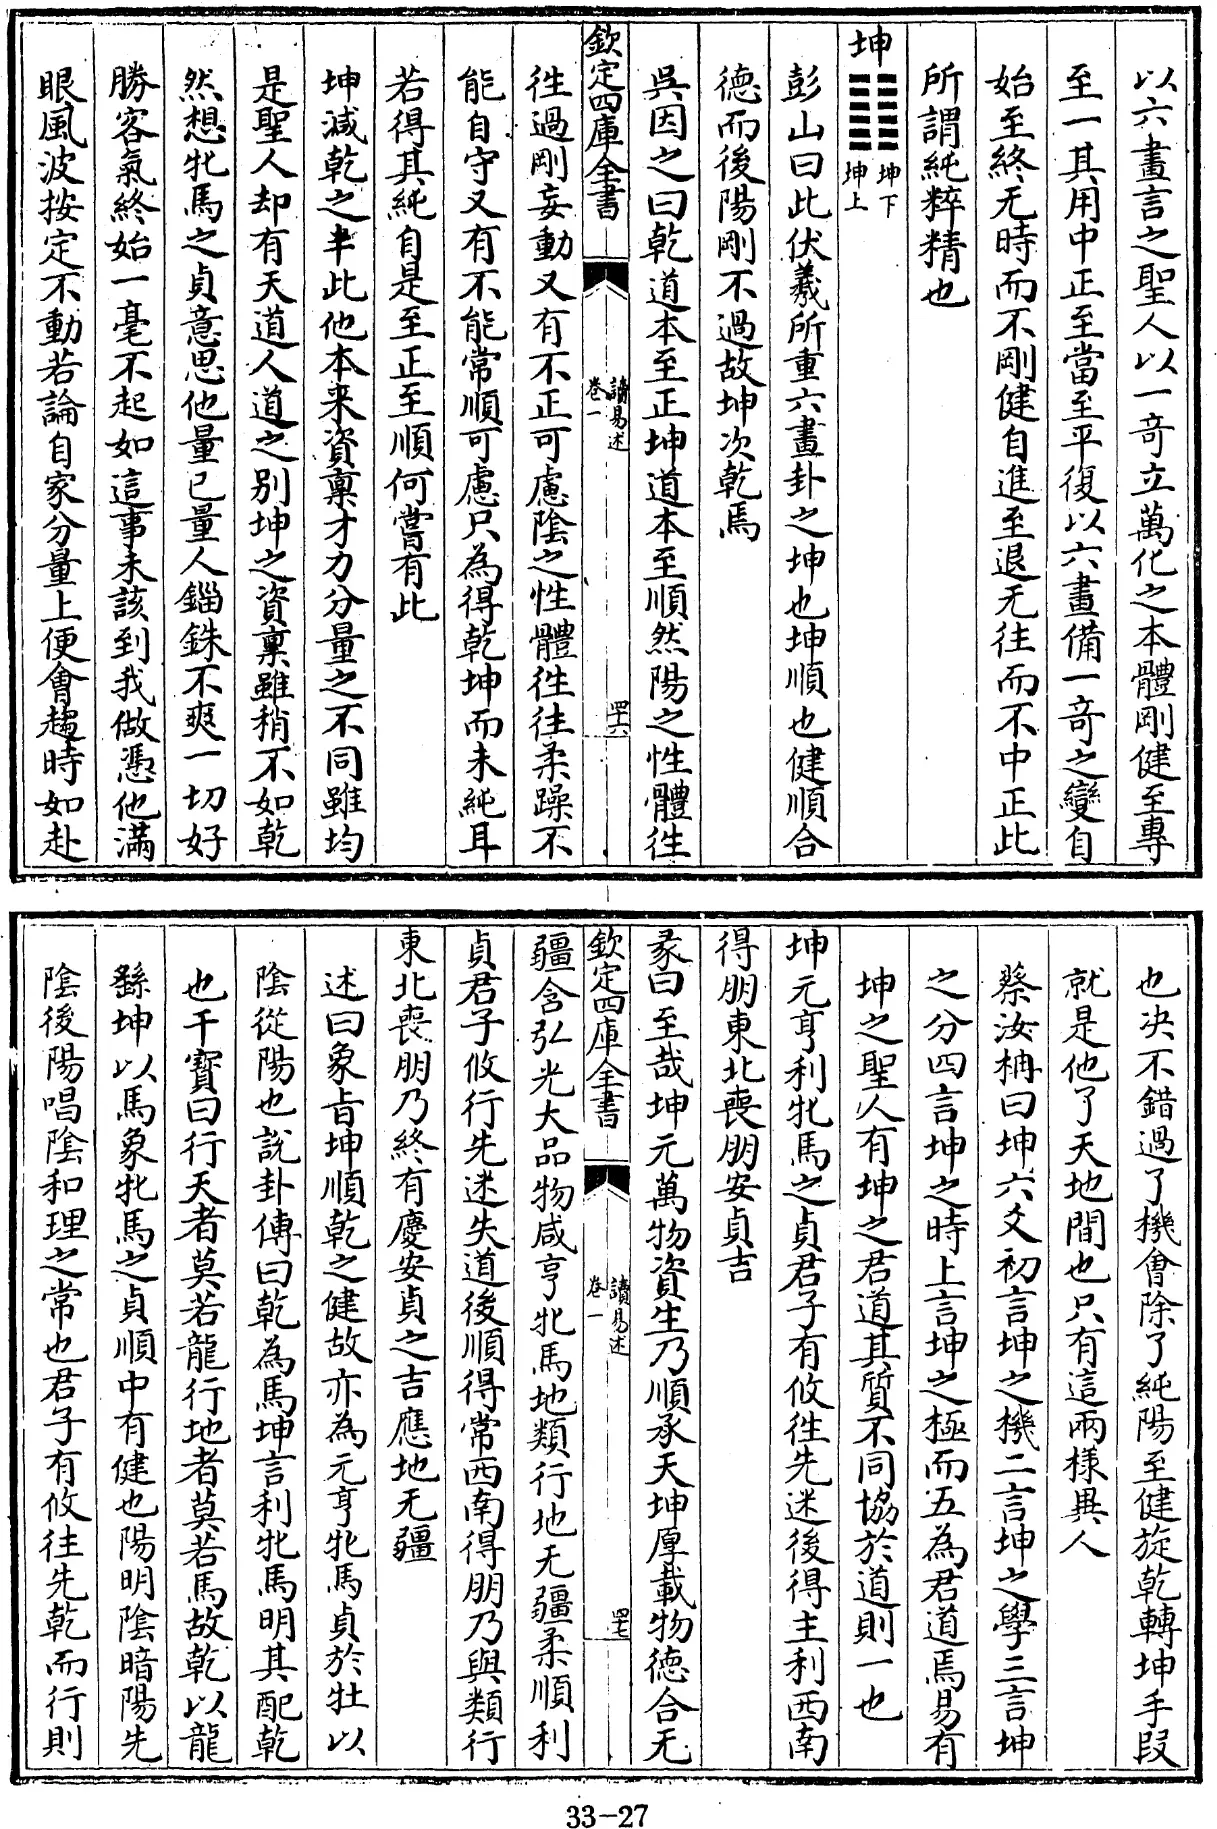 以六畫言之聖人以一竒立萬化之本體剛健至專
至一其用中正至當至平復以六畫備一竒之變自
始至終无時而不剛健自進至退无往而不中正此
所謂純粹精也
坤 坤下
坤上
彭山曰此伏羲所重六畫卦之坤也坤順也健順合
德而後陽剛不過故坤次乾焉
吳因之曰乾道本至正坤道本至順然陽之性體徃
欽定四庫全書
讀易述
卷一
四十六
徃過剛妄動又有不正可慮隂之性體徃往柔躁不
能自守又有不能常順可慮只為得乾坤而未純耳
若得其純自是至正至順何嘗有此
坤減乾之半此他本来資稟才力分量之不同雖均
是聖人却有天道人道之別坤之資稟雖稍不如乾
然想牝馬之貞意思他量已量人錙銖不爽一切好
勝客氣終始一毫不起如這事未該到我做憑他滿
眼風波按定不動若論自家分量上便會趨時如赴
也决不錯過了機會除了純陽至健旋乾轉坤手段
就是他了天地間也只有這兩様異人
蔡汝楠曰坤六爻初言坤之機二言坤之學三言坤
之分四言坤之時上言坤之極而五為君道焉易有
坤之聖人有坤之君道其質不同協於道則一也
坤元亨利牝馬之貞君子有攸徃先迷後得主利西南
得朋東北喪朋安貞吉
彖曰至哉坤元萬物資生乃順承天坤厚載物德合无
欽定四庫全書
讀易述
卷一
四十七
疆含弘光大品物咸亨牝馬地類行地无疆柔順利
貞君子攸行先迷失道後順得常西南得朋乃與類行
東北喪朋乃終有慶安貞之吉應地无疆
述曰象旨坤順乾之健故亦為元亨牝馬貞於牡以
隂從陽也說卦傳曰乾為馬坤言利牝馬明其配乾
也干寶曰行天者莫若龍行地者莫若馬故乾以龍
繇坤以馬象牝馬之貞順中有健也陽明隂暗陽先
隂後陽唱隂和理之常也君子有攸往先乾而行則
33-27